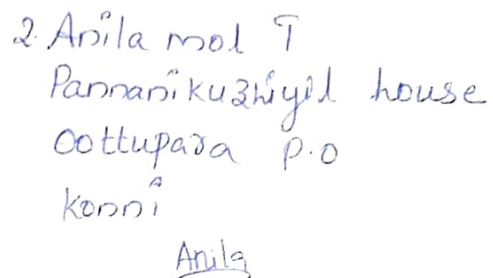 2. Anila mol T
Pannanikuzhiyil house
Oottupara P.O
Konni
Anila